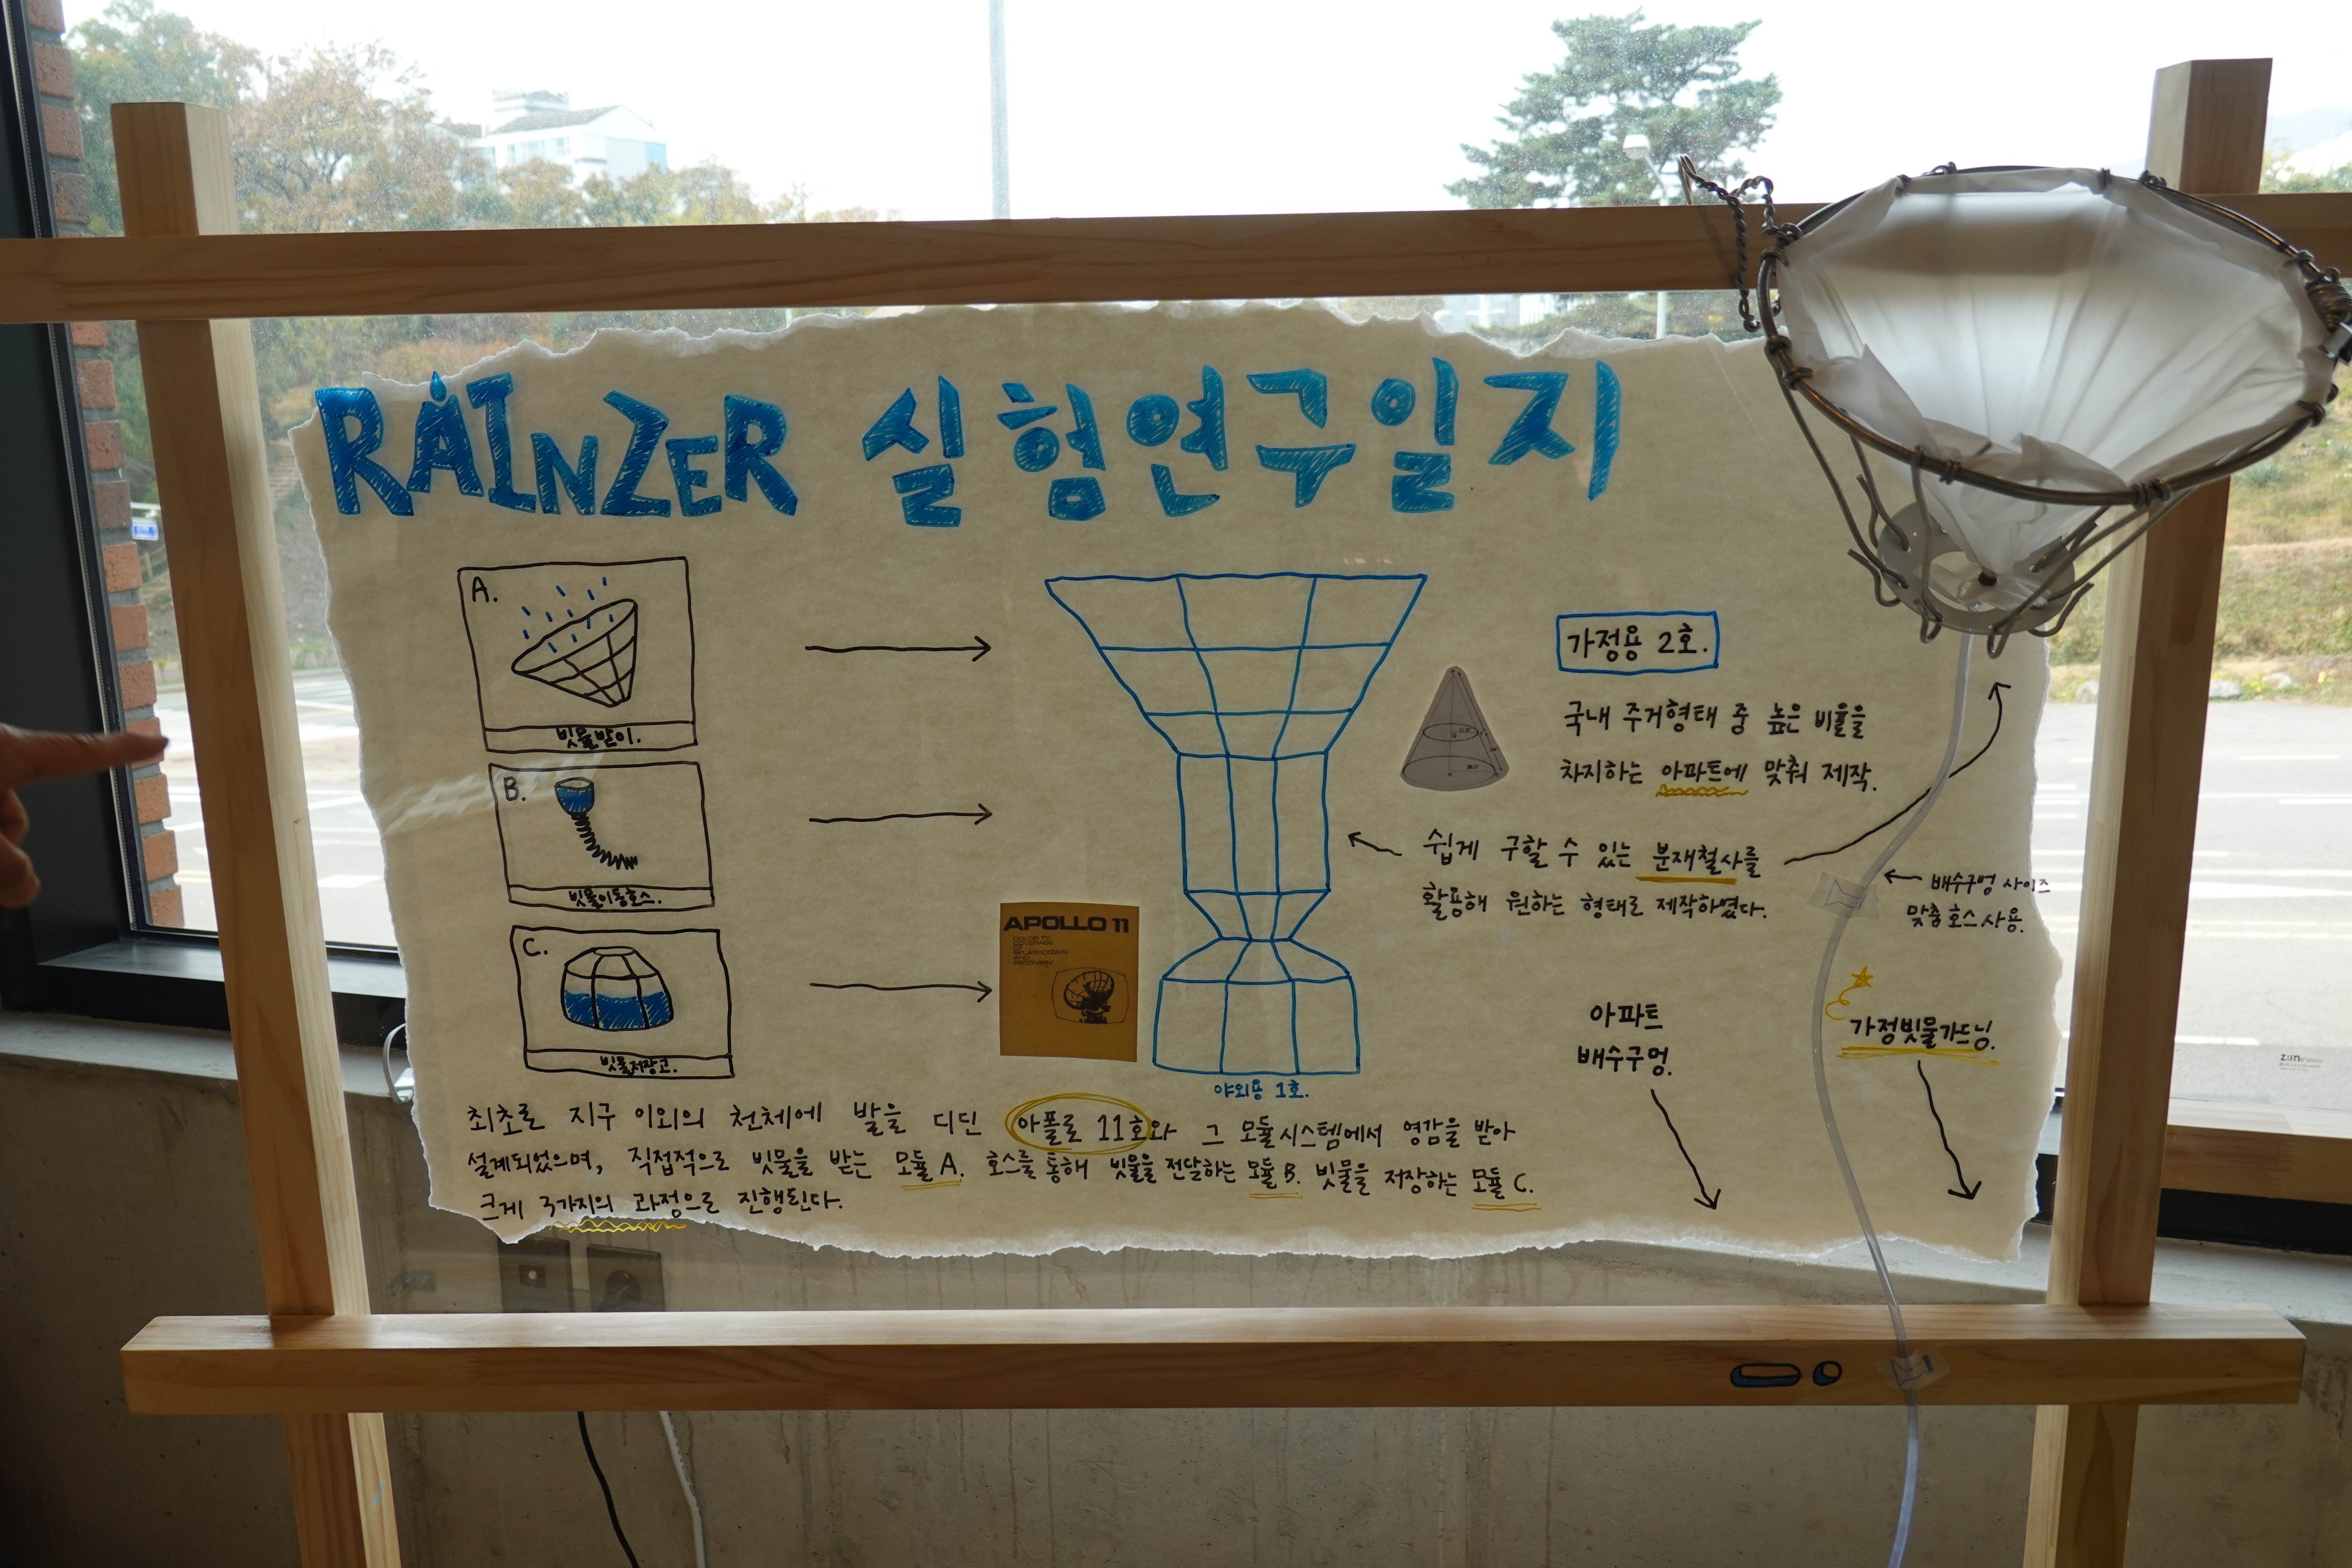 RAINZER 실험연구일지
A.
빗물받이.
B.
빗물이동호스.
C.
빗물저장고.
APOLLO 11
COLOR TV
COVERAGE
OF
SPLASHDOWN
AND
RECOVERY
야외용 1호.
가정용 2호.
국내 주거형태 중 높은 비율을
차지하는 아파트에 맞춰 제작.
쉽게 구할 수 있는 분재철사를
활용해 원하는 형태로 제작하였다.
배수구멍 사이즈
맞춤 호스 사용.
아파트
배수구멍.
가정빗물가드닝.
최초로 지구 이외의 천체에 발을 디딘 아폴로 11호와 그 모듈시스템에서 영감을 받아
설계되었으며, 직접적으로 빗물을 받는 모듈 A. 호스를 통해 빗물을 전달하는 모듈 B. 빗물을 저장하는 모듈 C.
크게 3가지의 과정으로 진행된다.